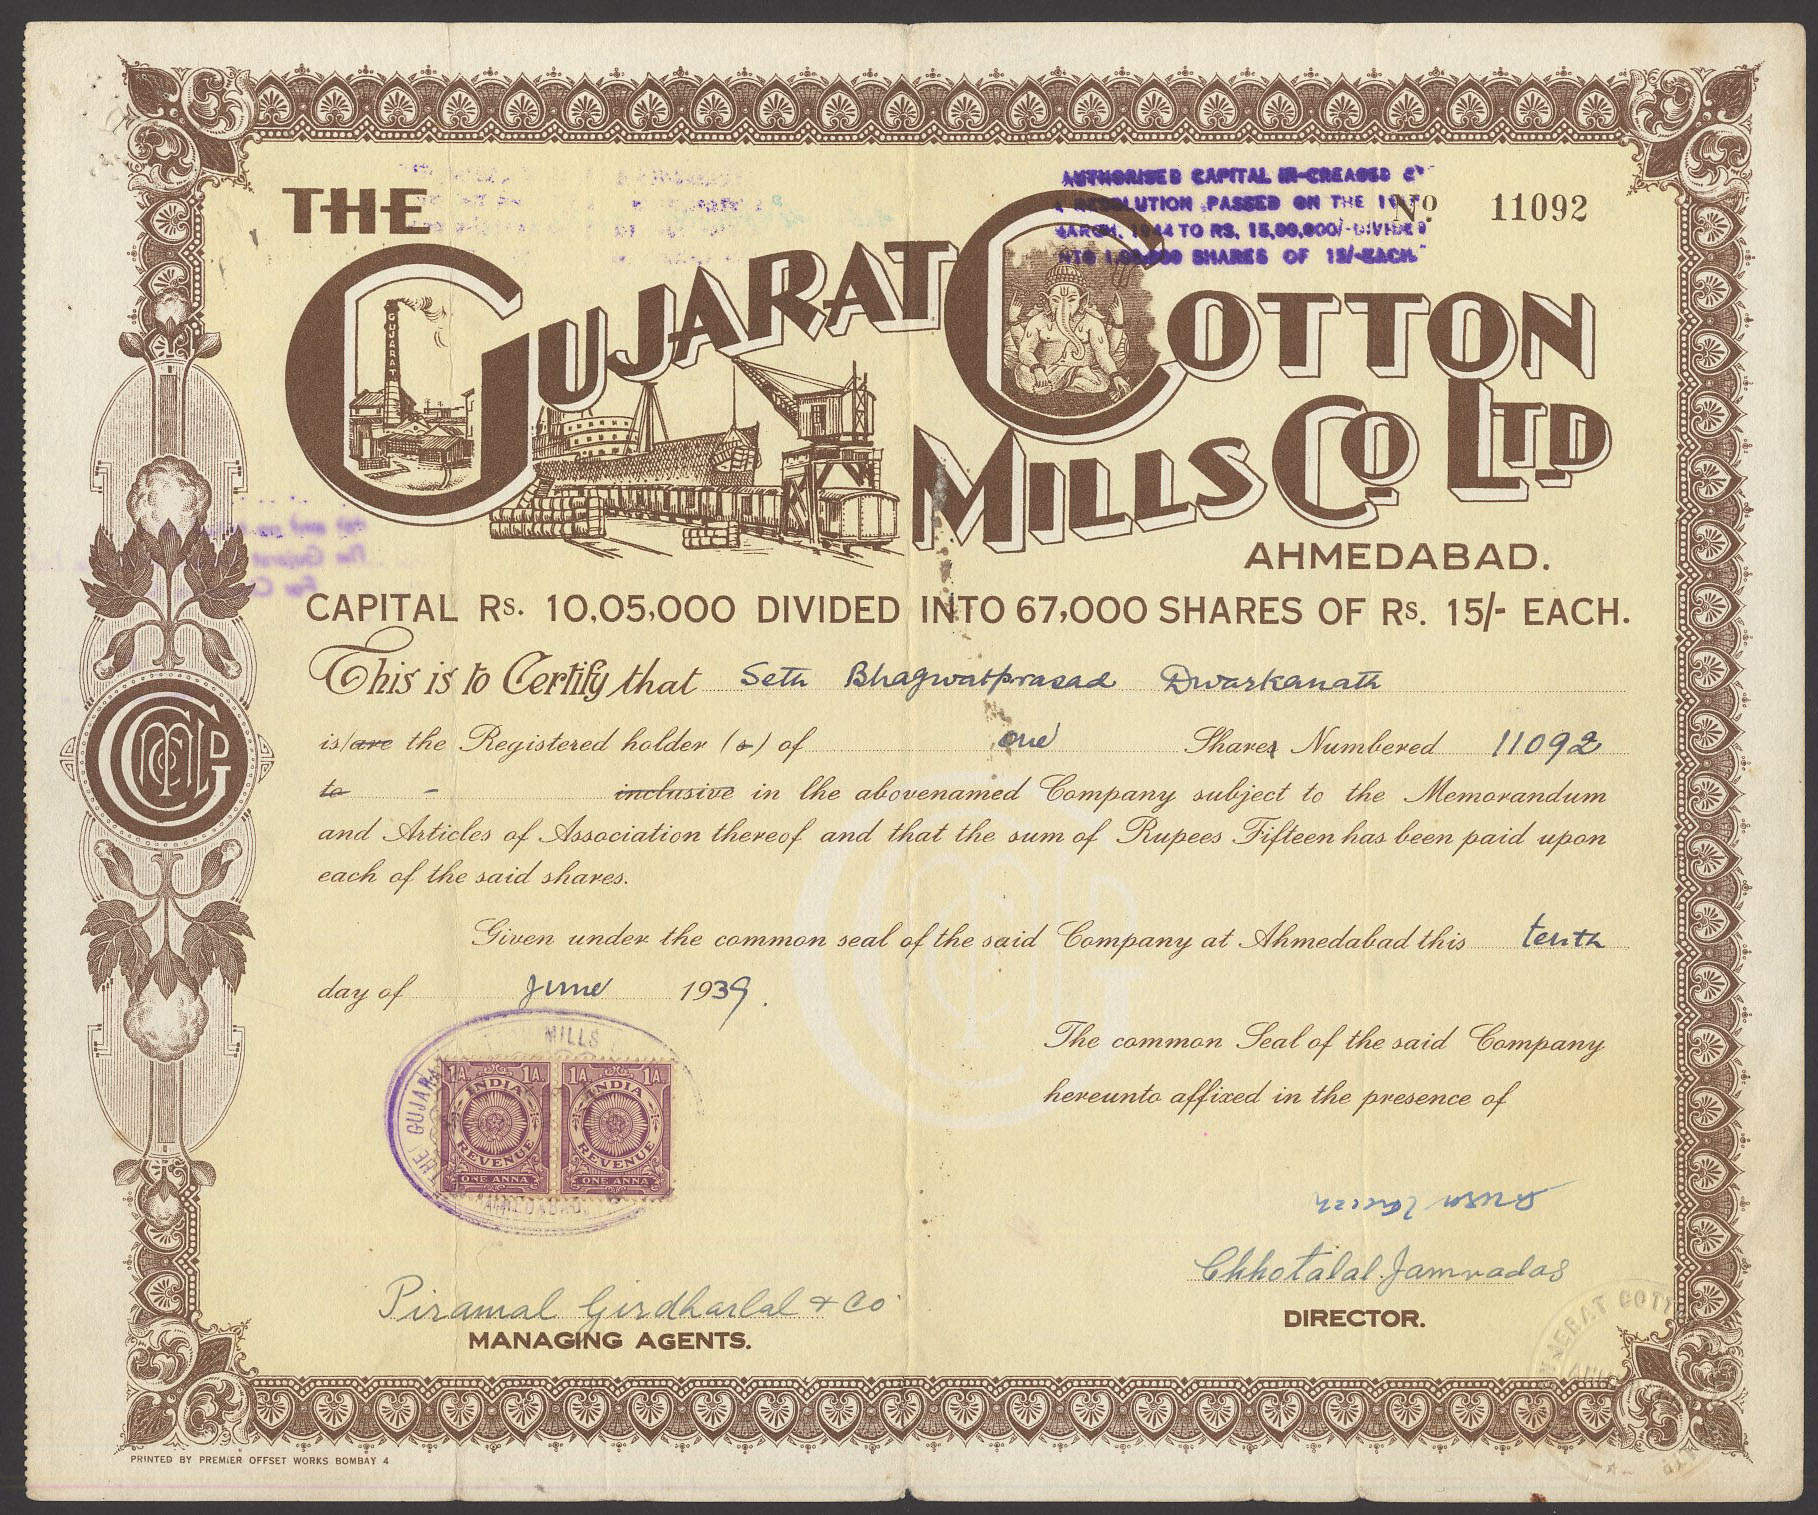 AUTHORISED CAPITAL IN-CREASED BY
A RESOLUTION PASSED ON THE
MARCH, 1944 TO RS. 15,00,000/- DIVIDED
INTO 1,00,000 SHARES OF 15/- EACH.
No 11092
THE
GUJARAT COTTON
MILLS CO LTD
GUJARAT
AHMEDABAD.
CAPITAL Rs. 10,05,000 DIVIDED INTO 67,000 SHARES OF Rs. 15/- EACH.
This is to Certify that Seth Bhagwatprasad Dwarkanath
is/are the Registered holder (s) of one Shares Numbered 11092
to - inclusive in the abovenamed Company subject to the Memorandum
and Articles of Association thereof and that the sum of Rupees Fifteen has been paid upon
each of the said shares.
Given under the common seal of the said Company at Ahmedabad this tenth
day of June 1939.
The common Seal of the said Company
hereunto affixed in the presence of
THE GUJARA MILLS
AHMEDABAD.
1A 1A 1A 1A
INDIA INDIA
REVENUE REVENUE
ONE ANNA ONE ANNA
Chhotalal Jamnadas
DIRECTOR.
Piramal Girdharlal & Co
MANAGING AGENTS.
PRINTED BY PREMIER OFFSET WORKS BOMBAY 4